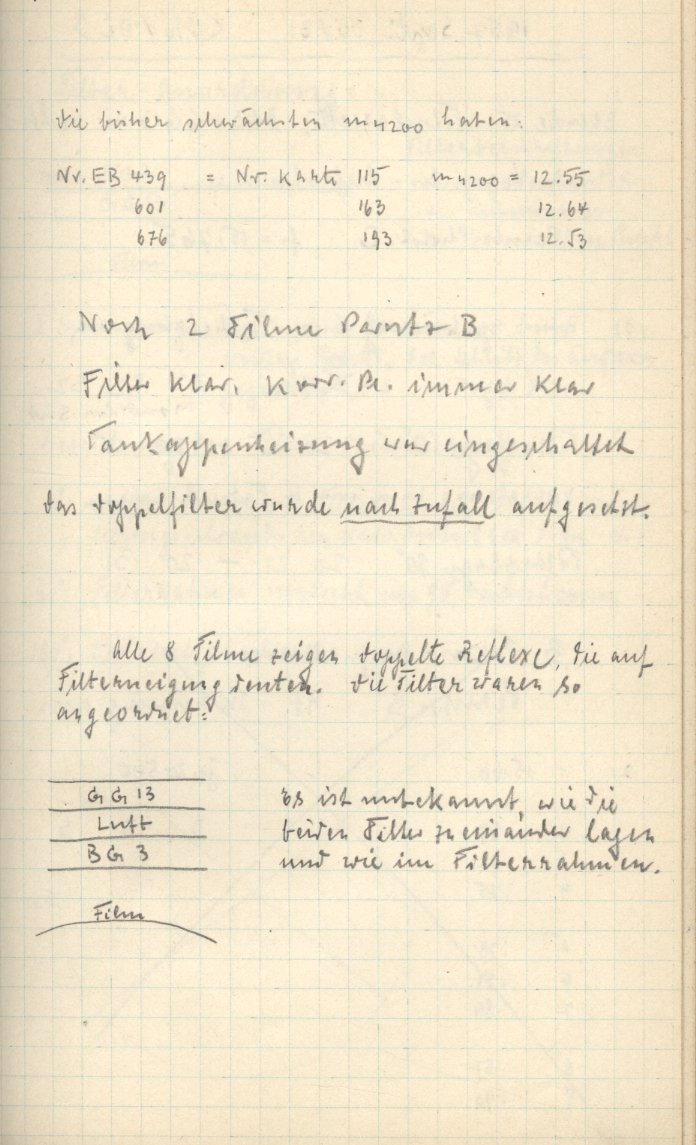 Die bisher schwächsten m4200 haben:
Nr. EB 439 = Nr. Karte 115 m4200 = 12.55
601 163 12.64
676 193 12.53
Noch 2 Filme Perutz B
Filter klar. Korr. Pl. immer klar
Taukappenheizung war eingeschaltet
Das Doppelfilter wurde nach Zufall aufgesetzt.
Alle 8 Filme zeigen doppelte Reflexe, die auf
Filterneigung deuten. Die Filter waren so
angeordnet:
GG 13
Luft
BG 3
Film
Es ist unbekannt, wie die
beiden Filter zueinander lagen
und wie im Filterrahmen.